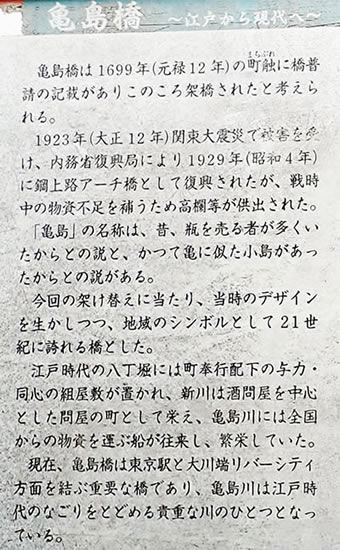 亀島橋 ～江戸から現代へ～
亀島橋は1699年(元禄12年)の町触に橋普
まちぶれ
請の記載がありこのころ架橋されたと考えら
れる。
1923年(大正12年)関東大震災で被害を受
け、内務省復興局により1929年(昭和4年)
に鋼上路アーチ橋として復興されたが、戦時
中の物資不足を補うため高欄等が供出された。
「亀島」の名称は、昔、瓶を売る者が多くい
たからとの説と、かつて亀に似た小島があっ
たからとの説がある。
今回の架け替えに当たり、当時のデザイン
を生かしつつ、地域のシンボルとして21世
紀に誇れる橋とした。
江戸時代の八丁堀には町奉行配下の与力・
同心の組屋敷が置かれ、新川は酒問屋を中心
とした問屋の町として栄え、亀島川には全国
からの物資を運ぶ船が往来し、繁栄していた。
現在、亀島橋は東京駅と大川端リバーシティ
方面を結ぶ重要な橋であり、亀島川は江戸時
代のなごりをとどめる貴重な川のひとつとなっ
ている。